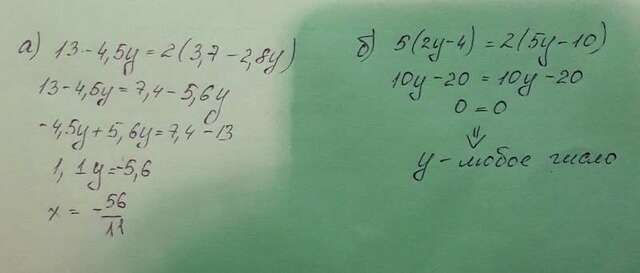 а) 13-4,5y=2(3,7-2,8y)
13-4,5y=7,4-5,6y
-4,5y+5,6y=7,4-13
1,1y=-5,6
x = -56/11
б) 5(2y-4)=2(5y-10)
10y-20=10y-20
0=0
⇓
y-любое число